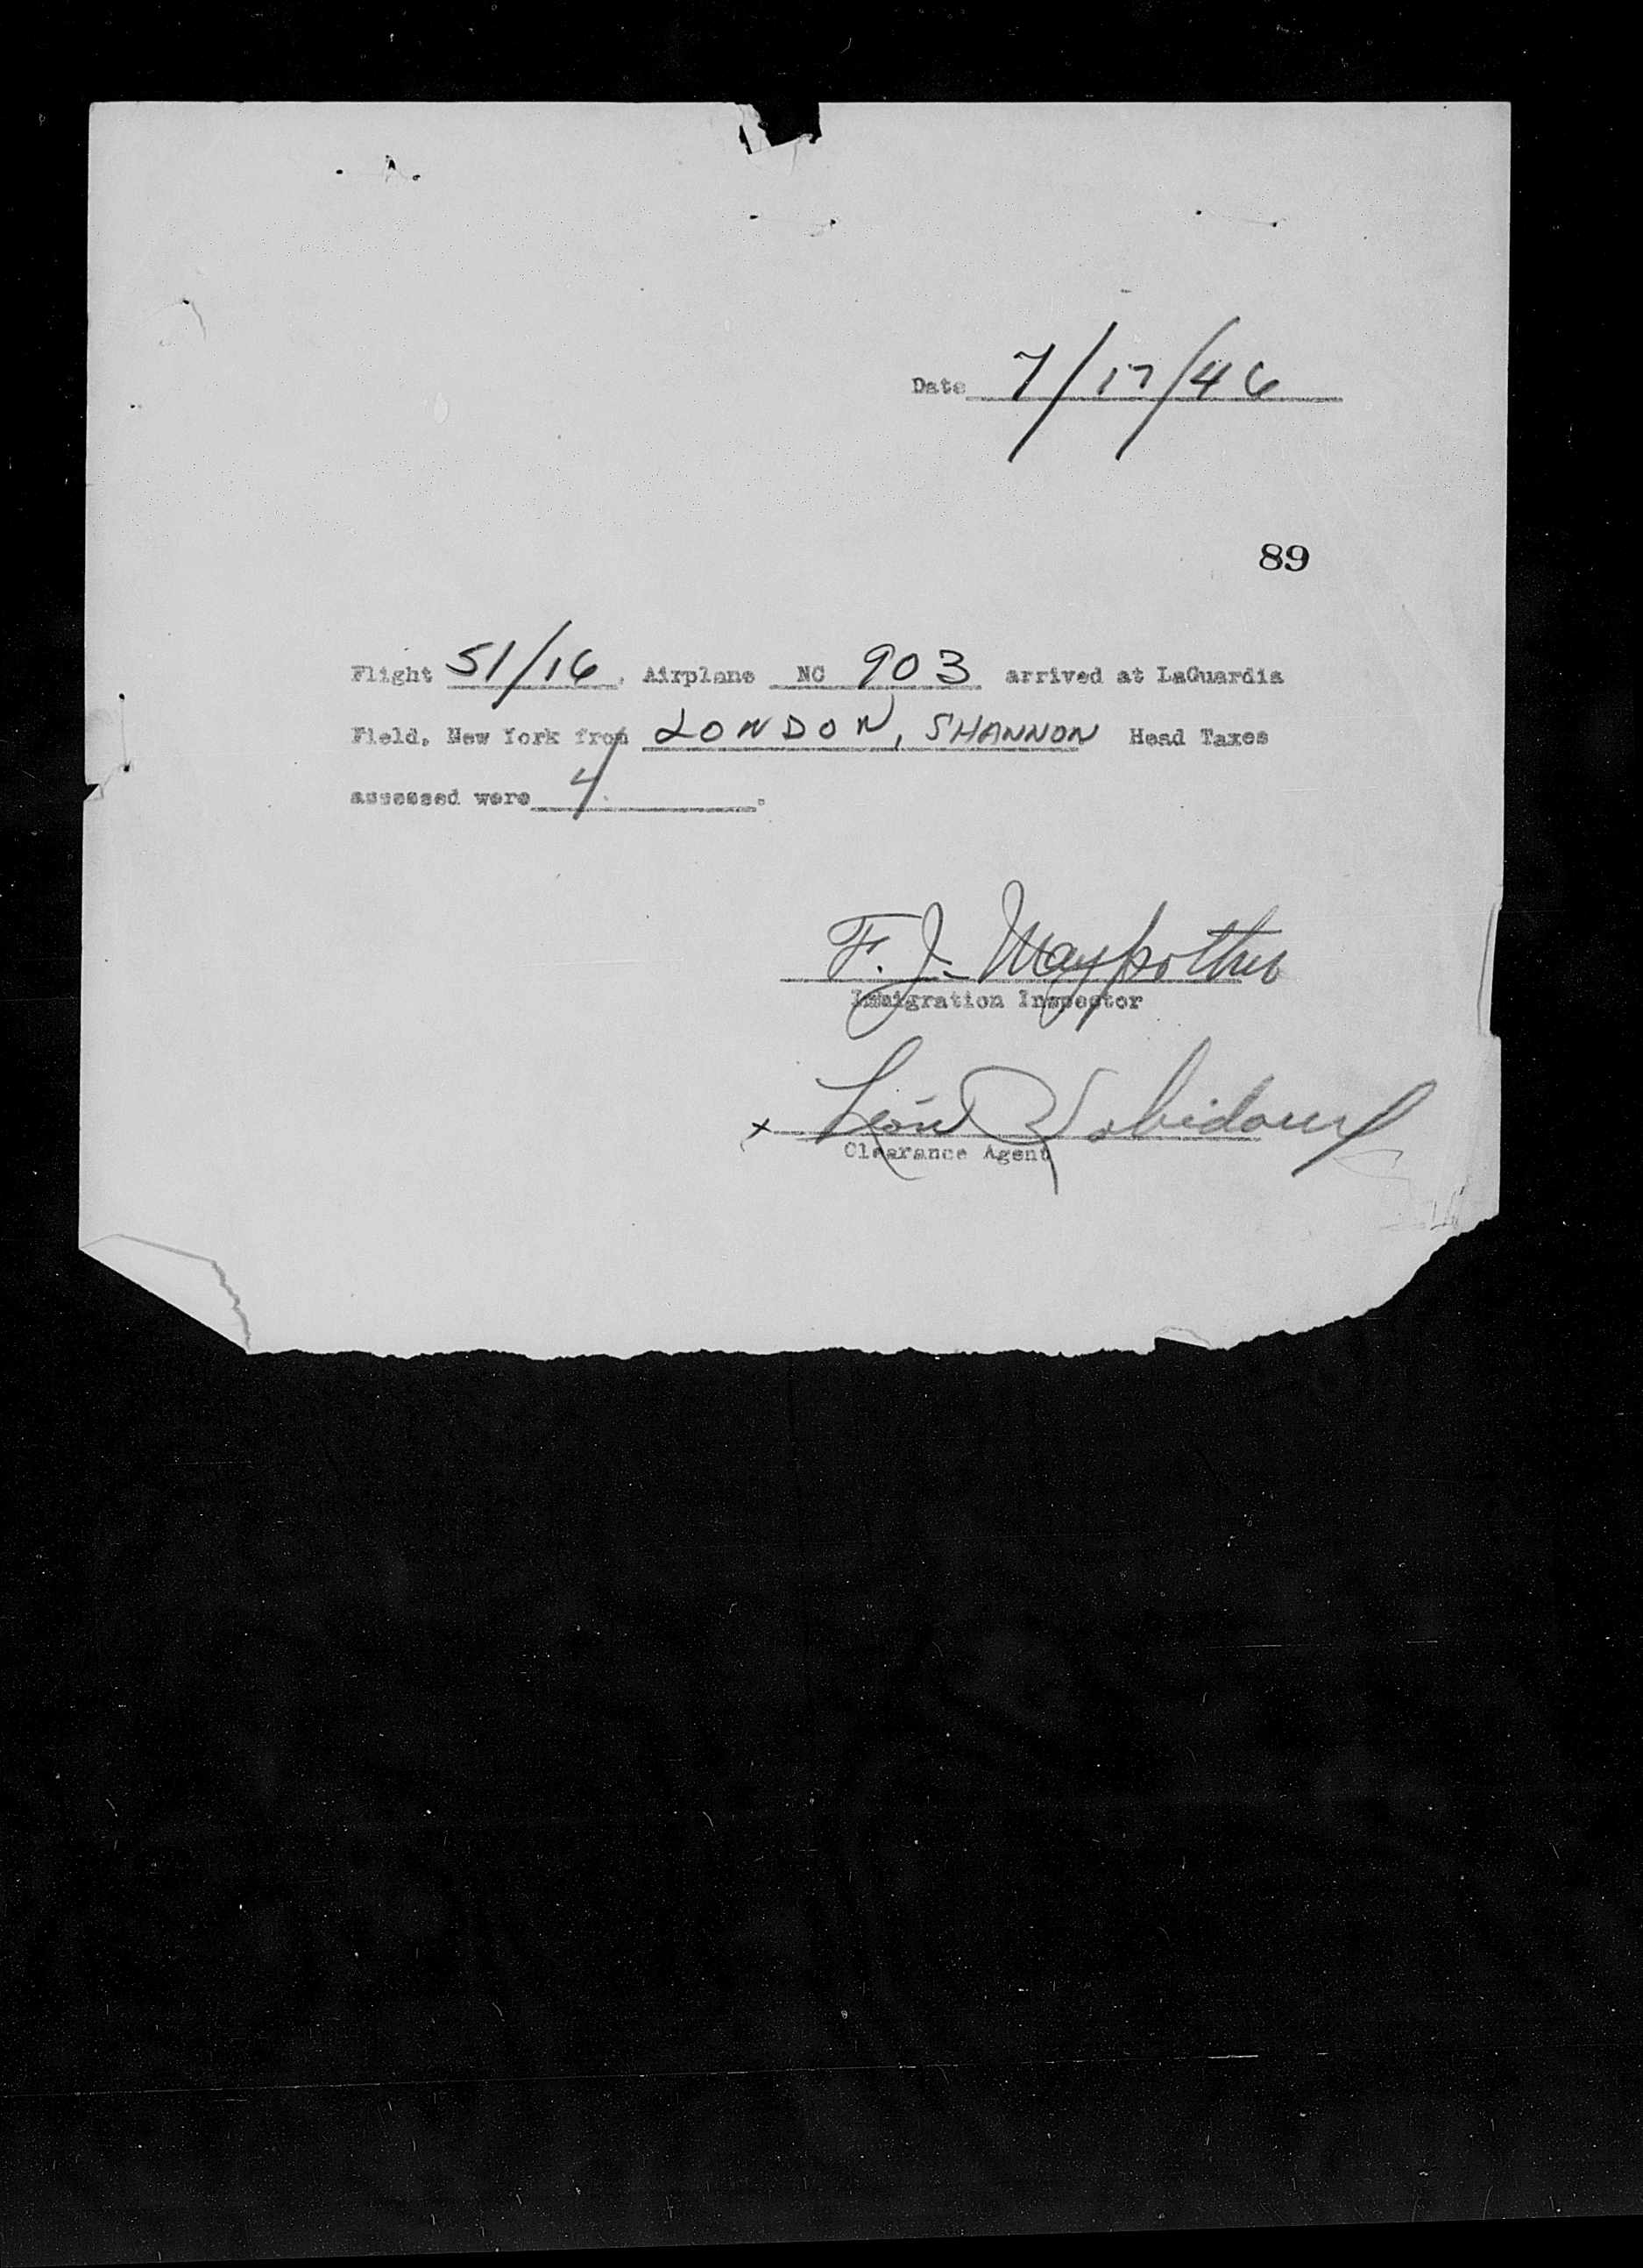 Date 7/17/46
89
Flight 51/16, Airplane NC 903 arrived at LaGuardia
Field, New York from LONDON, SHANNON Head Taxes
assessed were 4.
F. J. Maypother
Immigration Inspector
x Léon Robidoux
Clearance Agent